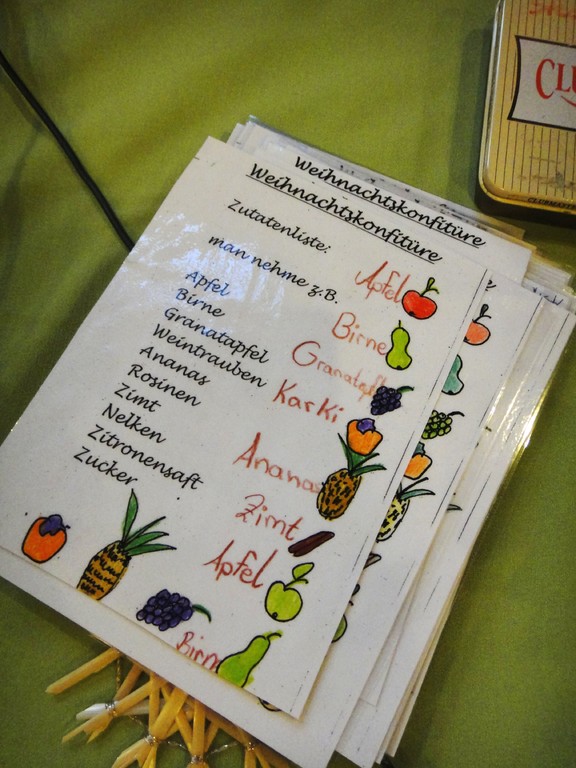 Weihnachtskonfitüre
Weihnachtskonfitüre
Zutatenliste:
man nehme z.B.
Apfel
Birne
Granatapfel
Weintrauben
Ananas
Rosinen
Zimt
Nelken
Zitronensaft
Zucker
Apfel
Birne
Granatapfel
Karki
Ananas
Zimt
Apfel
Birne